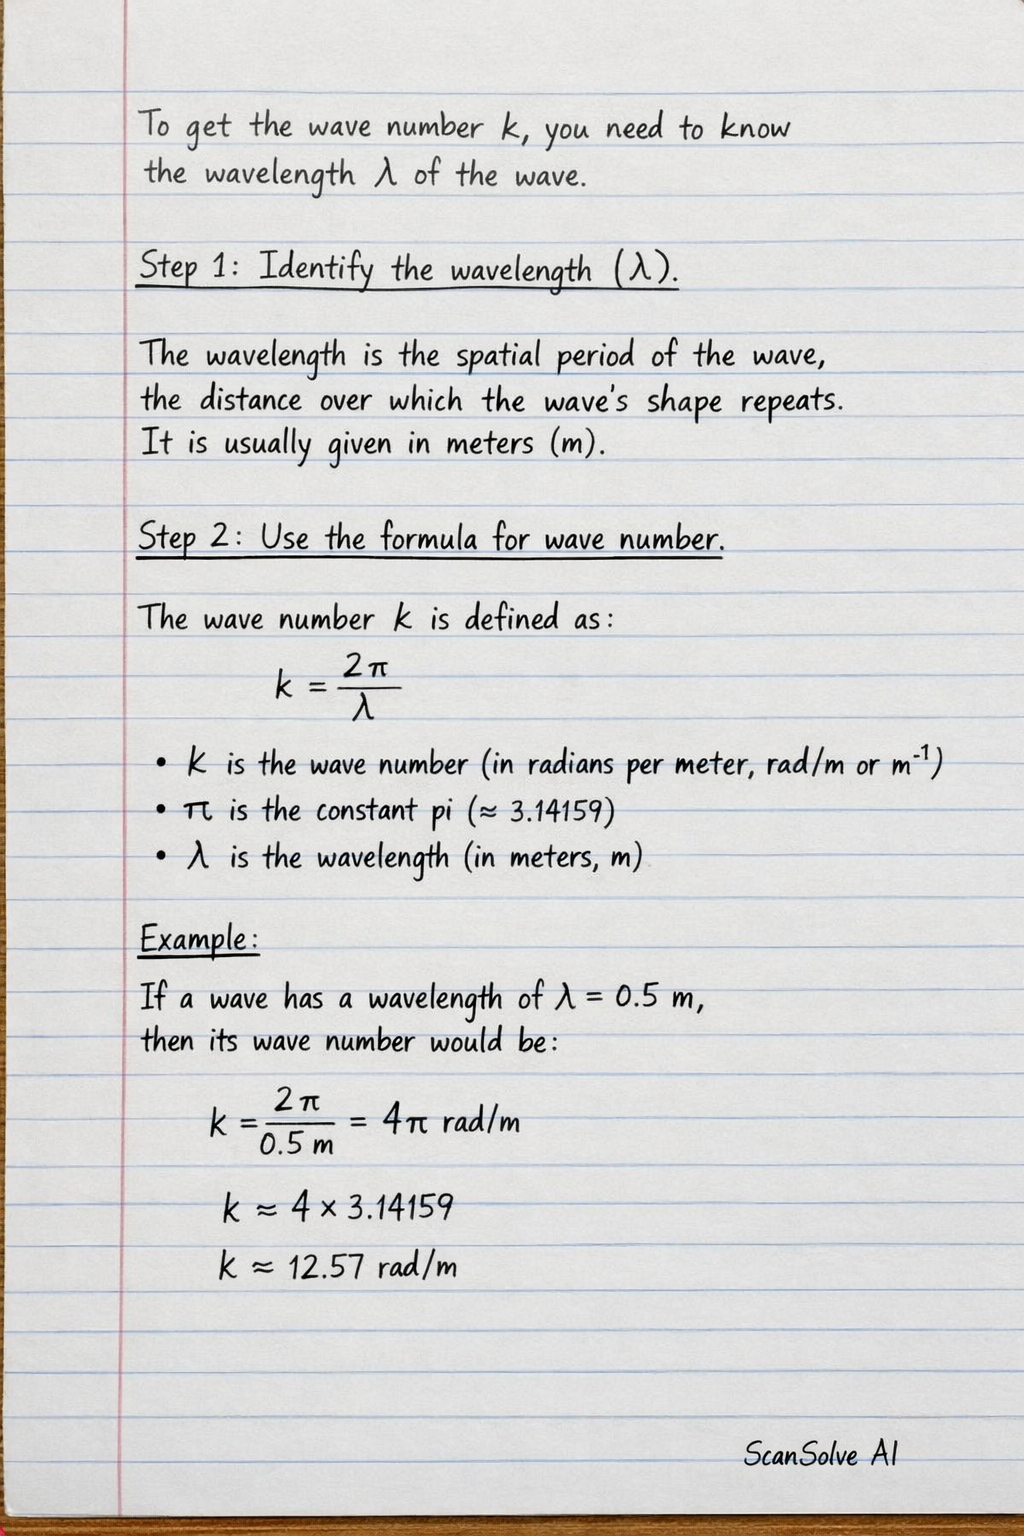 To get the wave number k, you need to know
the wavelength λ of the wave.
Step 1: Identify the wavelength (λ).
The wavelength is the spatial period of the wave,
the distance over which the wave's shape repeats.
It is usually given in meters (m).
Step 2: Use the formula for wave number.
The wave number k is defined as:
k = 2π/λ
• k is the wave number (in radians per meter, rad/m or m⁻¹)
• π is the constant pi (≈ 3.14159)
• λ is the wavelength (in meters, m)
Example:
If a wave has a wavelength of λ = 0.5 m,
then its wave number would be:
k = 2π/0.5 m = 4π rad/m
k ≈ 4 × 3.14159
k ≈ 12.57 rad/m
ScanSolve AI